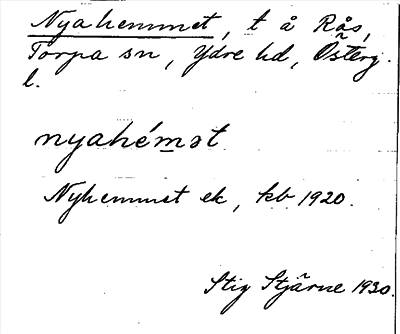 Nyahemmet, t å Rås,
Torpa sn, Ydre hd, Österg.
l.
nyahémət
Nyhemmet ek, kb 1920.
Stig Stjärne 1930.